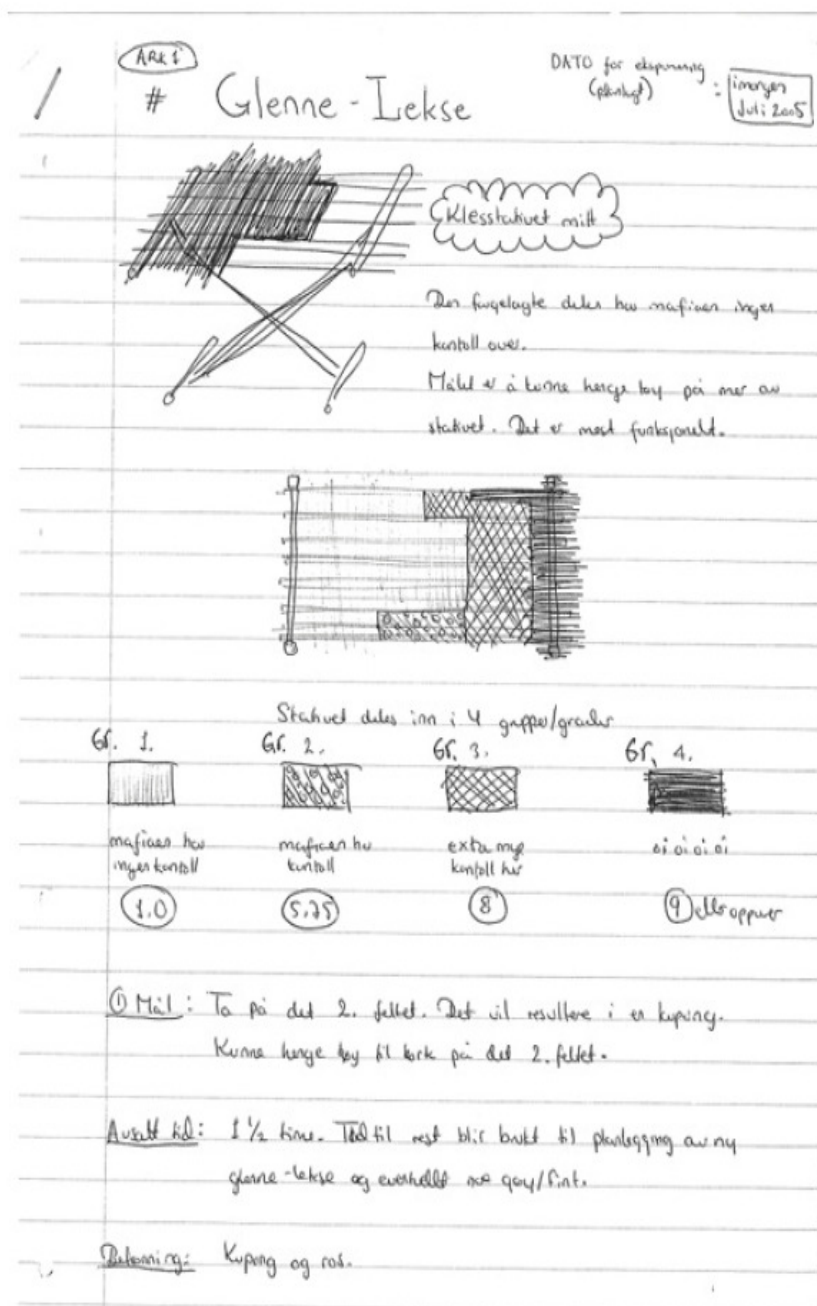 ARK 1
# Glenne-Lekse
DATO for eksponering
(planlagt) : imorgen
Juli 2005
Klesstativet mitt
Den fargelagte delen har mafiaen ingen
kontroll over.
Målet er å kunne henge tøy på mer av
stativet. Det er mest funksjonelt.
Stativet deles inn i 4 grupper/grader
Gr. 1. Gr. 2. Gr. 3. Gr. 4.
mafiaen har mafiaen har extra mye oi oi oi oi
ingen kontroll kontroll kontroll her
1.0 5.75 8 9 eller oppover
① Mål: Ta på det 2. feltet. Det vil resultere i en kuping.
Kunne henge tøy til tørk på det 2. feltet.
Avsatt tid: 1 ½ time. Tid til rest blir brukt til planlegging av ny
glenne-lekse og eventuellt noe gøy/fint.
Belønning: Kuping og ros.